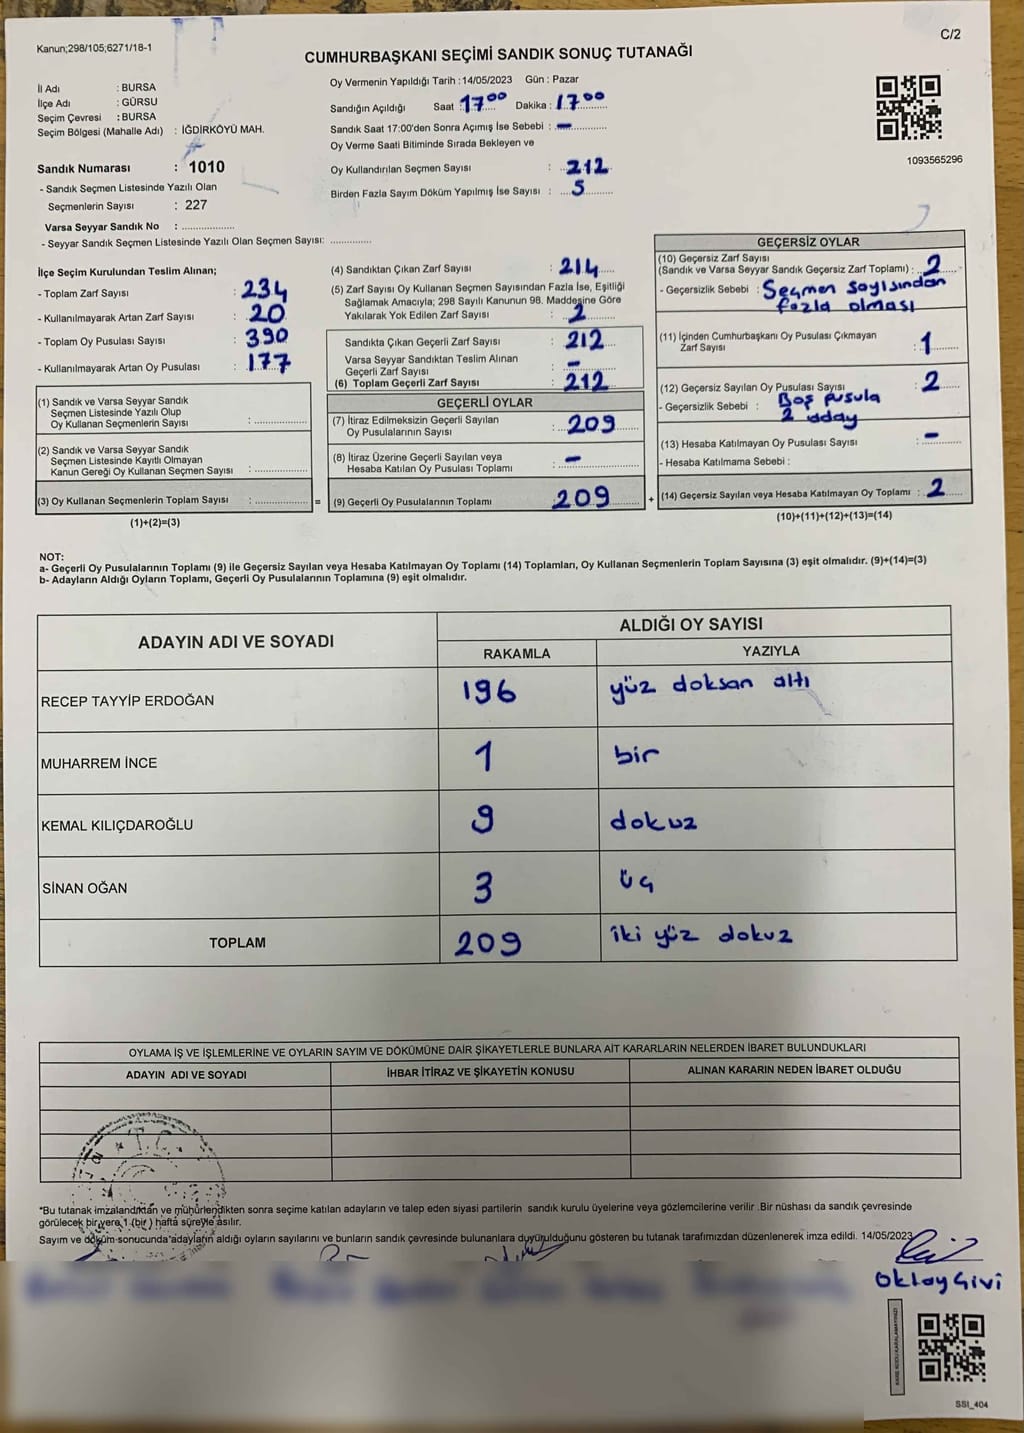 Kanun;298/105;6271/18-1
C/2
CUMHURBAŞKANI SEÇİMİ SANDIK SONUÇ TUTANAĞI
İl Adı : BURSA
İlçe Adı : GÜRSU
Seçim Çevresi : BURSA
Seçim Bölgesi (Mahalle Adı) : IĞDIRKÖYÜ MAH.
Sandık Numarası : 1010
- Sandık Seçmen Listesinde Yazılı Olan
Seçmenlerin Sayısı : 227
Varsa Seyyar Sandık No : ..................
- Seyyar Sandık Seçmen Listesinde Yazılı Olan Seçmen Sayısı: ..............
Oy Vermenin Yapıldığı Tarih : 14/05/2023 Gün : Pazar
Sandığın Açıldığı Saat : 17⁰⁰ Dakika : 17⁰⁰
Sandık Saat 17:00'den Sonra Açımış İse Sebebi : –
Oy Verme Saati Bitiminde Sırada Bekleyen ve
Oy Kullandırılan Seçmen Sayısı : 212
Birden Fazla Sayım Döküm Yapılmış İse Sayısı : 5
1093565296
İlçe Seçim Kurulundan Teslim Alınan;
- Toplam Zarf Sayısı : 234
- Kullanılmayarak Artan Zarf Sayısı : 20
- Toplam Oy Pusulası Sayısı : 390
- Kullanılmayarak Artan Oy Pusulası : 177
(1) Sandık ve Varsa Seyyar Sandık
Seçmen Listesinde Yazılı Olup
Oy Kullanan Seçmenlerin Sayısı : ..............
(2) Sandık ve Varsa Seyyar Sandık
Seçmen Listesinde Kayıtlı Olmayan
Kanun Gereği Oy Kullanan Seçmen Sayısı : ..............
(3) Oy Kullanan Seçmenlerin Toplam Sayısı : .............. =
(1)+(2)=(3)
(4) Sandıktan Çıkan Zarf Sayısı : 214
(5) Zarf Sayısı Oy Kullanan Seçmen Sayısından Fazla İse, Eşitliği
Sağlamak Amacıyla; 298 Sayılı Kanunun 98. Maddesine Göre
Yakılarak Yok Edilen Zarf Sayısı : 2
Sandıkta Çıkan Geçerli Zarf Sayısı : 212
Varsa Seyyar Sandıktan Teslim Alınan
Geçerli Zarf Sayısı : –
(6) Toplam Geçerli Zarf Sayısı : 212
GEÇERLİ OYLAR
(7) İtiraz Edilmeksizin Geçerli Sayılan
Oy Pusulalarının Sayısı : 209
(8) İtiraz Üzerine Geçerli Sayılan veya
Hesaba Katılan Oy Pusulası Toplamı : –
(9) Geçerli Oy Pusulalarının Toplamı 209 +
GEÇERSİZ OYLAR
(10) Geçersiz Zarf Sayısı
(Sandık ve Varsa Seyyar Sandık Geçersiz Zarf Toplamı) : 2
- Geçersizlik Sebebi : Seçmen sayısından
fazla olması
(11) İçinden Cumhurbaşkanı Oy Pusulası Çıkmayan
Zarf Sayısı : 1
(12) Geçersiz Sayılan Oy Pusulası Sayısı : 2
- Geçersizlik Sebebi : Boş pusula
2 aday
(13) Hesaba Katılmayan Oy Pusulası Sayısı : –
- Hesaba Katılmama Sebebi :
(14) Geçersiz Sayılan veya Hesaba Katılmayan Oy Toplamı : 2
(10)+(11)+(12)+(13)=(14)
NOT:
a- Geçerli Oy Pusulalarının Toplamı (9) ile Geçersiz Sayılan veya Hesaba Katılmayan Oy Toplamı (14) Toplamları, Oy Kullanan Seçmenlerin Toplam Sayısına (3) eşit olmalıdır. (9)+(14)=(3)
b- Adayların Aldığı Oyların Toplamı, Geçerli Oy Pusulalarının Toplamına (9) eşit olmalıdır.
ADAYIN ADI VE SOYADI
ALDIĞI OY SAYISI
RAKAMLA YAZIYLA
RECEP TAYYİP ERDOĞAN 196 yüz doksan altı
MUHARREM İNCE 1 bir
KEMAL KILIÇDAROĞLU 9 dokuz
SİNAN OĞAN 3 üç
TOPLAM 209 iki yüz dokuz
OYLAMA İŞ VE İŞLEMLERİNE VE OYLARIN SAYIM VE DÖKÜMÜNE DAİR ŞİKAYETLERLE BUNLARA AİT KARARLARIN NELERDEN İBARET BULUNDUKLARI
ADAYIN ADI VE SOYADI İHBAR İTİRAZ VE ŞİKAYETİN KONUSU ALINAN KARARIN NEDEN İBARET OLDUĞU
T.C.
*Bu tutanak imzalandıktan ve mühürlendikten sonra seçime katılan adayların ve talep eden siyasi partilerin sandık kurulu üyelerine veya gözlemcilerine verilir .Bir nüshası da sandık çevresinde
görülecek bir yere 1 (bir ) hafta süreyle asılır.
Sayım ve döküm sonucunda adayların aldığı oyların sayılarını ve bunların sandık çevresinde bulunanlara duyurulduğunu gösteren bu tutanak tarafımızdan düzenlenerek imza edildi. 14/05/2023
Oktay Givi
SSI_404